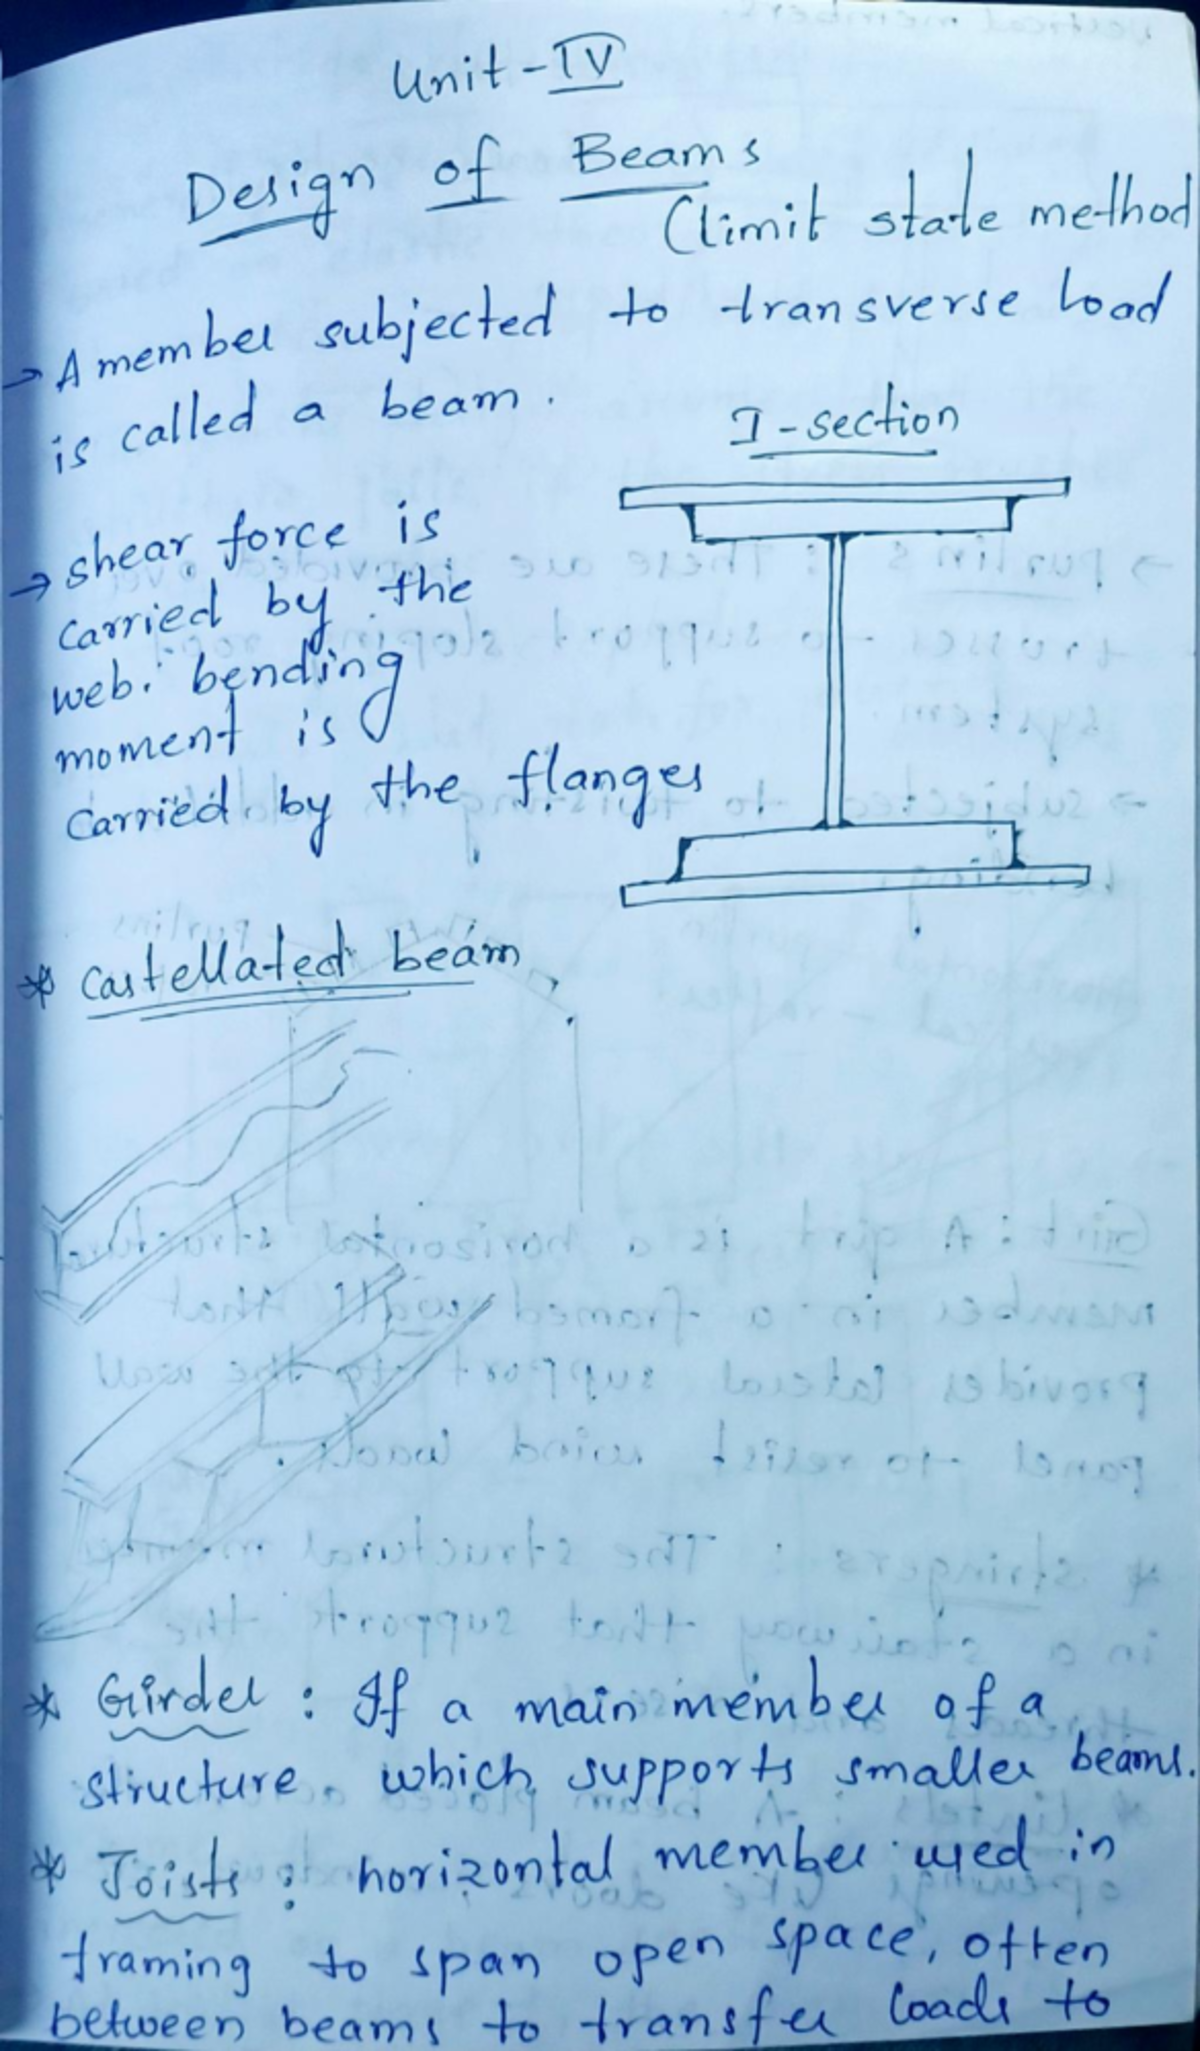 Unit - IV
Design of Beams
(limit state method
→ A member subjected to transverse load
is called a beam.
I-section
→ shear force is
carried by the
web. bending
moment is
carried by the flanges
* Castellated beam
* Girder : If a main member of a
structure which supports smaller beams.
* Joists : horizontal member used in
framing to span open space, often
between beams to transfer loads to